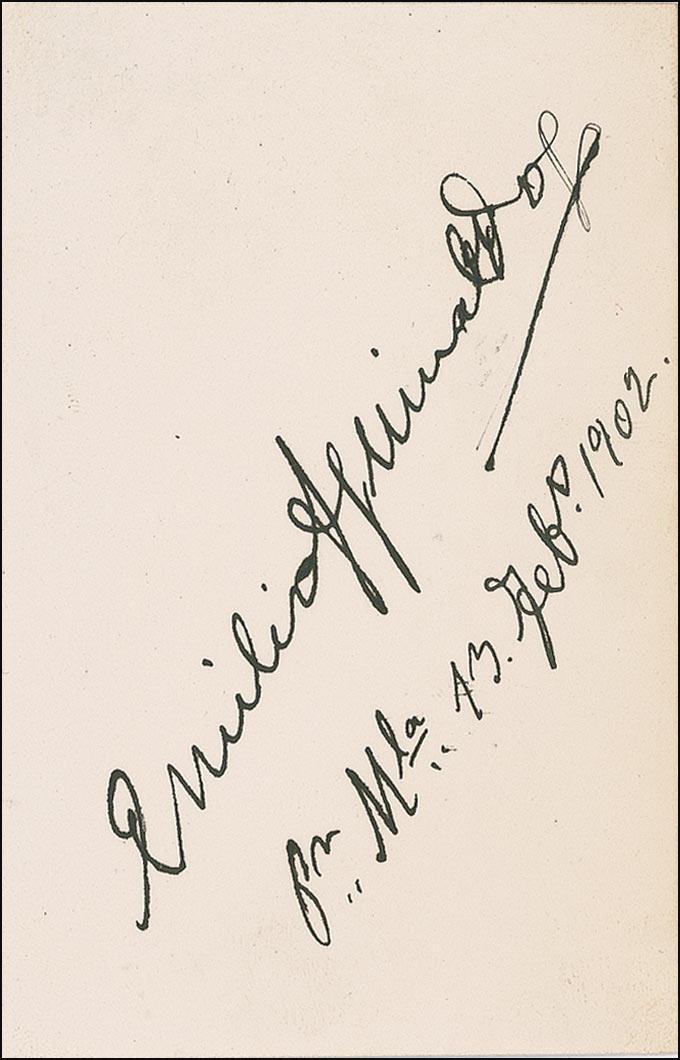 Emilio Aguinaldo
Mla 13. Febo. 1902.